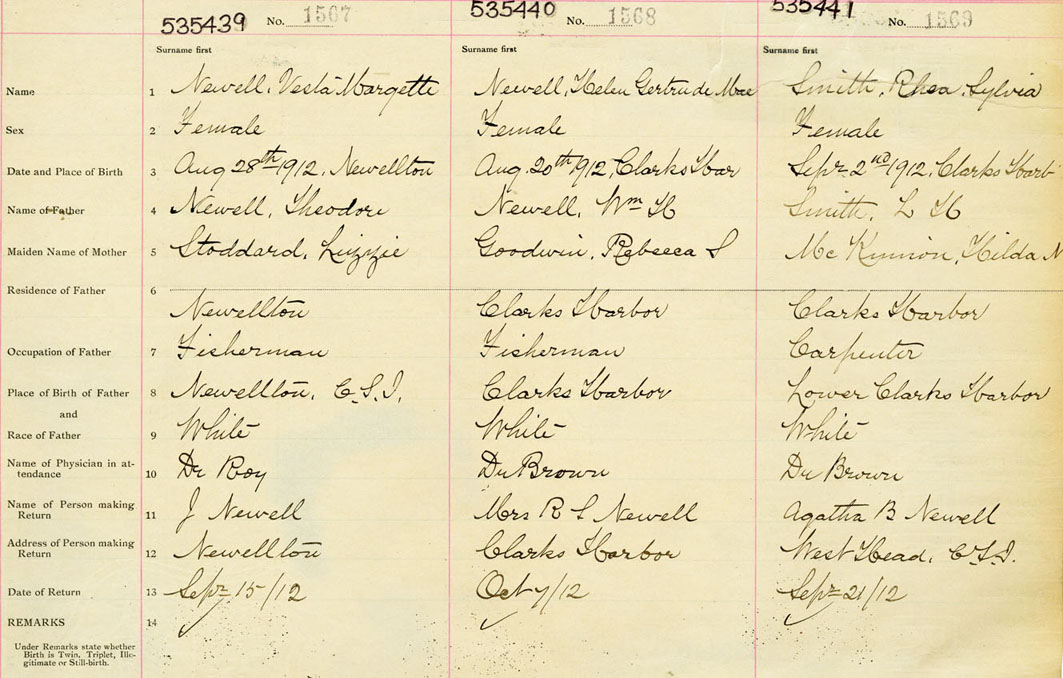 535439 No. 1567 535440 No. 1568 535441 No. 1569
Surname first Surname first Surname first
Name 1 Newell, Vesta Margette Newell, Helen Gertrude Mae Smith, Rhea Sylvia
Sex 2 Female Female Female
Date and Place of Birth 3 Aug 28th 1912, Newellton Aug. 20th 1912, Clarks Harbor Sept 2nd 1912, Clarks Harb
Name of Father 4 Newell, Theodore Newell, Wm H Smith, L H
Maiden Name of Mother 5 Stoddard, Lizzie Goodwin, Rebecca S McKinnon, Hilda
Residence of Father 6 Newellton Clarks Harbor Clarks Harbor
Occupation of Father 7 Fisherman Fisherman Carpenter
Place of Birth of Father 8 Newellton, C.S.I. Clarks Harbor Lower Clarks Harbor
and
Race of Father 9 White White White
Name of Physician in at-
tendance 10 Dr Roy Dr Brown Dr Brown
Name of Person making
Return 11 J Newell Mrs R S Newell Agatha B Newell
Address of Person making
Return 12 Newellton Clarks Harbor West Head, C.S.I.
Date of Return 13 Sept 15/12 Oct 7/12 Sept 21/12
REMARKS 14
Under Remarks state whether
Birth is Twin, Triplet, Ille-
gitimate or Still-birth.